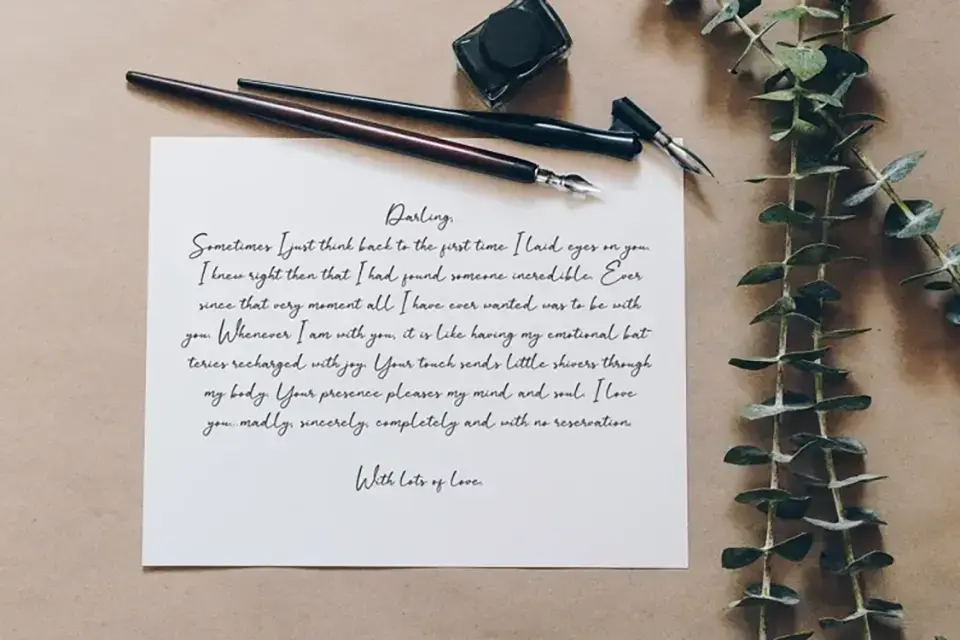 Darling,
Sometimes I just think back to the first time I laid eyes on you.
I knew right then that I had found someone incredible. Ever
since that very moment all I have ever wanted was to be with
you. Whenever I am with you, it is like having my emotional bat-
teries recharged with joy. Your touch sends little shivers through
my body. Your presence pleases my mind and soul. I love
you...madly, sincerely, completely and with no reservation.
With lots of love.